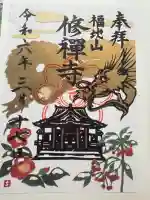 奉拝
福地山
修禅寺
令和六年三月十七